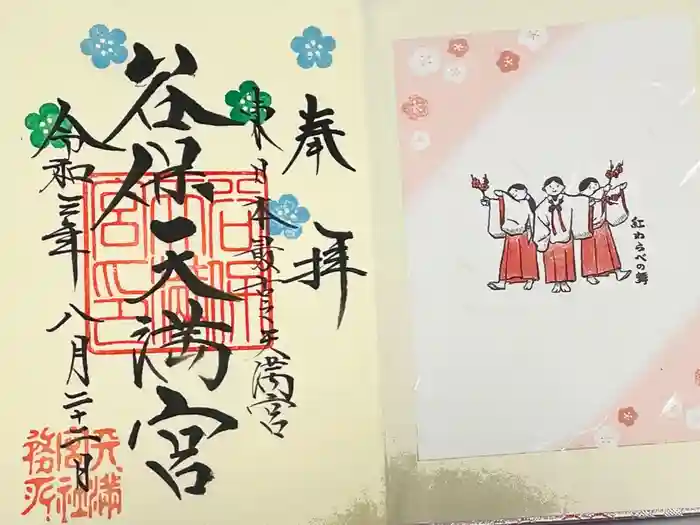 奉拝
東日本最古之天満宮
谷保天満宮
令和三年八月二十二日
天満
宮社
務所
紅わらべの舞